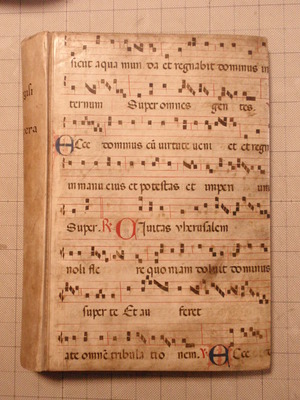 gali
pera
sient aqua mun da et regnabit dominus in
ternum Super omnes gentes.
Ecce dominus cū virtute veni et et regn
in manu eius et potestas et imperi um
Super. ℟ Civitas yherusalem
noli fle re quoniam doluit dominus
super te Et au feret
a te omnē tribula tio nem. ℟ Ecce